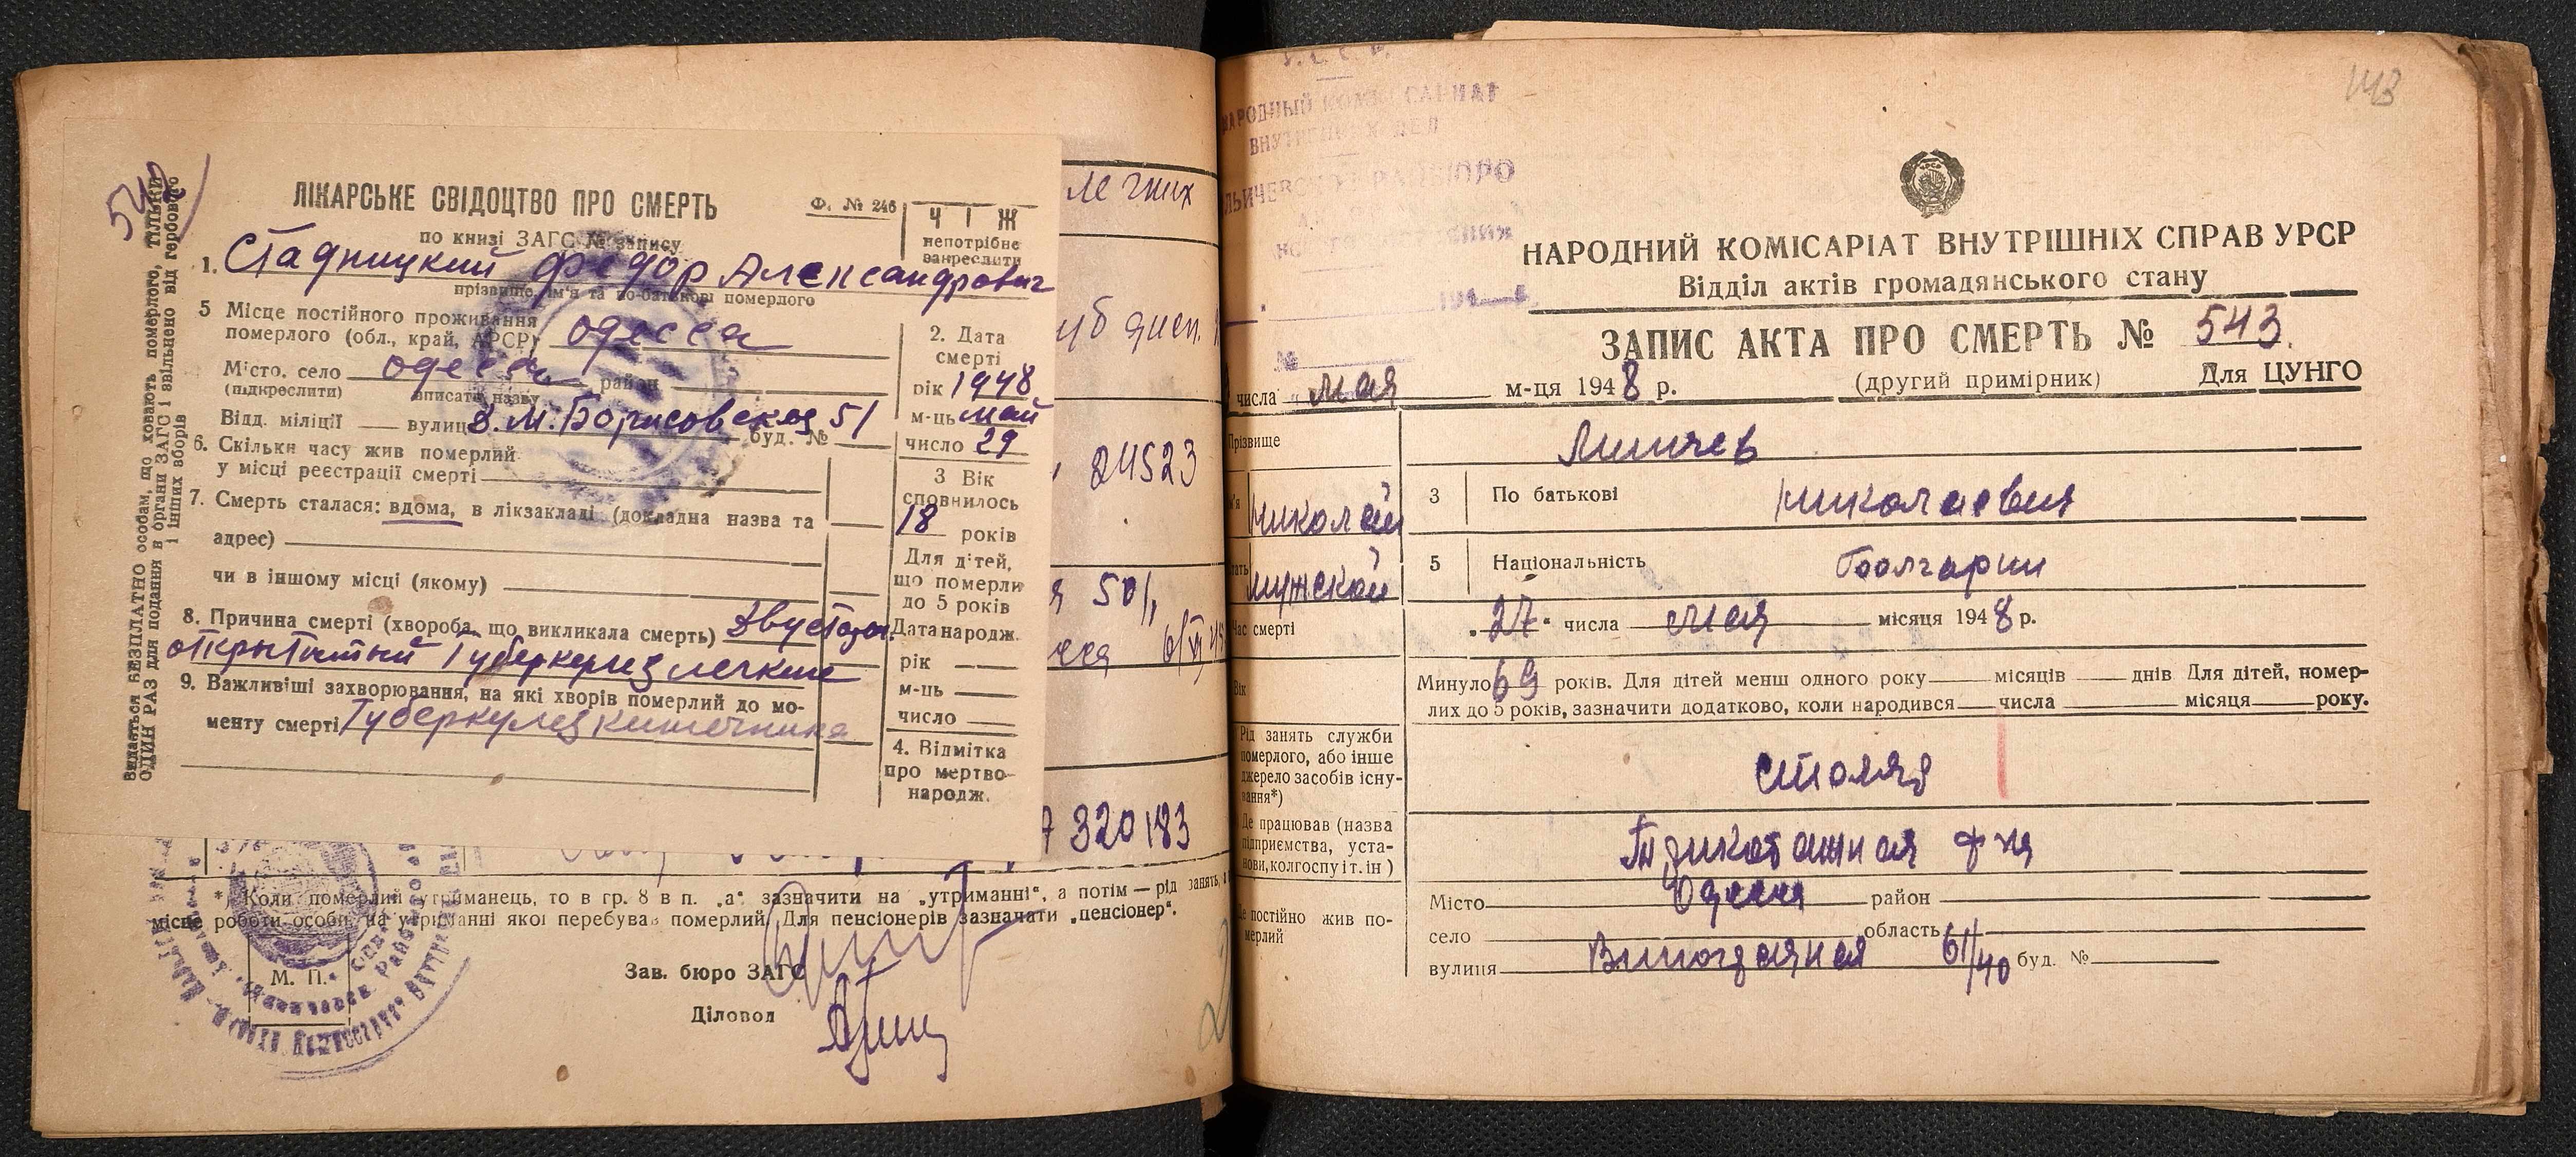 542
Видається БЕЗПЛАТНО особам, що ховають померлого, ТІЛЬКИ
ОДИН РАЗ для подання в органи ЗАГС і звільнено від гербового
і інших зборів
ЛІКАРСЬКЕ СВІДОЦТВО ПРО СМЕРТЬ
Ф. № 246
Ч І Ж
непотрібне
закреслити
по книзі ЗАГС № запису
1. Стадницкий Федор Александрович
прізвище, ім'я та по-батькові померлого
5 Місце постійного проживання
померлого (обл., край, АРСР) Одесса
Місто, село Одесса район
(підкреслити) вписати назву
Відд. міліції вулиц Д. М. Борисовская 51 буд. №
6. Скільки часу жив померлий
у місці реєстрації смерті
7. Смерть сталася: вдома, в лікзакладі (докладна назва та
адрес)
чи в іншому місці (якому)
8. Причина смерті (хвороба, що викликала смерть) Двустор.
открытый Туберкулез легких
9. Важливіші захворювання, на які хворів померлий до мо-
менту смерті Туберкулез кишечника
2. Дата
смерті
рік 1948
м-ць май
число 29
3 Вік
сповнилось
18 років
Для дітей,
що померли
до 5 років
Дата народж.
рік
м-ць
число
4. Відмітка
про мертво-
народж.
легких
24523
50/,
320183
*) Коли померлий утриманець, то в гр. 8 в п. „а“ зазначити на „утриманні“, а потім — рід занять,
місце роботи особи, на утриманні якої перебував померлий. Для пенсіонерів зазначати „пенсіонер“.
М. П.
Зав. бюро ЗАГС
Діловод
НАРОДНЫЙ КОМИССАРИАТ
ВНУТРЕННИХ ДЕЛ
143
НАРОДНИЙ КОМІСАРІАТ ВНУТРІШНІХ СПРАВ УРСР
Відділ актів громадянського стану
ЗАПИС АКТА ПРО СМЕРТЬ № 543.
числа мая м-ця 1948 р. (другий примірник) Для ЦУНГО
Прізвище
Николай 3 По батькові Николаевич
мужской 5 Національність болгарин
Час смерті „27“ числа мая місяця 1948 р.
Вік Минуло 69 років. Для дітей менш одного року місяців днів Для дітей, помер-
лих до 5 років, зазначити додатково, коли народився числа місяця року.
Рід занять служби
померлого, або інше
джерело засобів існу-
вання*)
столяр
Де працював (назва
підприємства, уста-
нови, колгоспу і т. ін)
Трикотажная ф-ка
Де постійно жив по-
мерлий
Місто Одесса район
село область
вулиця 61/40 буд. №